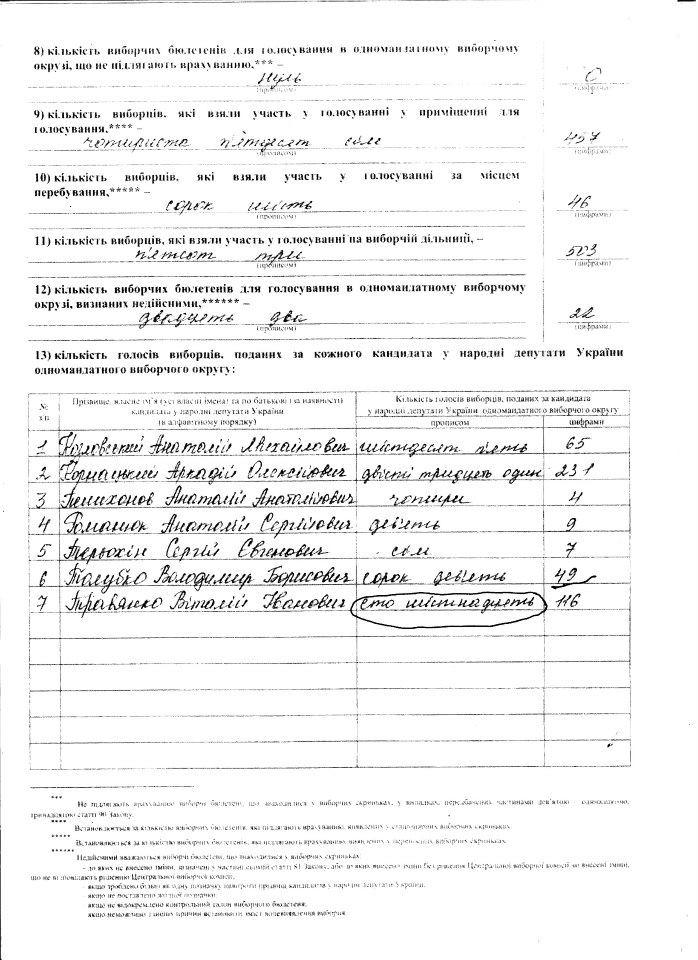 8) кількість виборчих бюлетенів для голосування в одномандатному виборчому
окрузі, що не підлягають врахуванню,*** –
нуль 0
(прописом) (цифрами)
9) кількість виборців, які взяли участь у голосуванні у приміщенні для
голосування,**** –
чотириста п'ятдесят сім 457
(прописом) (цифрами)
10) кількість виборців, які взяли участь у голосуванні за місцем
перебування,***** –
сорок шість 46
(прописом) (цифрами)
11) кількість виборців, які взяли участь у голосуванні на виборчій дільниці, –
п'ятсот три 503
(прописом) (цифрами)
12) кількість виборчих бюлетенів для голосування в одномандатному виборчому
окрузі, визнаних недійсними,****** –
двадцять два 22
(прописом) (цифрами)
13) кількість голосів виборців, поданих за кожного кандидата у народні депутати України
одномандатного виборчого округу:
№ з/п
Прізвище, власне ім'я (усі власні імена) та по батькові (за наявності)
кандидата у народні депутати України
(в алфавітному порядку)
Кількість голосів виборців, поданих за кандидата
у народні депутати України одномандатного виборчого округу
прописом цифрами
1 Анатолій Михайлович шістдесят п'ять 65
2 Корнацький Аркадій Олексійович двісті тридцять один 231
3 Анатолій Анатолійович чотири 4
4 Романюк Анатолій Сергійович дев'ять 9
5 Терьохін Сергій Євгенович сім 7
6 Володимир Борисович сорок дев'ять 49
7 Травянко Віталій Іванович сто шістнадцять 116
***
Не підлягають врахуванню виборчі бюлетені, що знаходилися у виборчих скриньках, у випадках, передбачених частинами дев'ятою – одинадцятою,
тринадцятою статті 90 Закону.
****
Встановлюється за кількістю виборчих бюлетенів, які підлягають врахуванню, виявлених у стаціонарних виборчих скриньках.
*****
Встановлюється за кількістю виборчих бюлетенів, які підлягають врахуванню, виявлених у переносних виборчих скриньках.
******
Недійсними вважаються виборчі бюлетені, що знаходилися у виборчих скриньках:
– до яких не внесено зміни, зазначені у частині статті 81 Закону, або до яких внесено зміни без рішення Центральної виборчої комісії чи внесені зміни,
що не відповідають рішенню Центральної виборчої комісії;
– якщо зроблено більш як одну позначку навпроти прізвищ кандидатів у народні депутати України;
– якщо не поставлено жодної позначки;
– якщо не відокремлено контрольний талон виборчого бюлетеня;
– якщо неможливо з інших причин встановити зміст волевиявлення виборця.